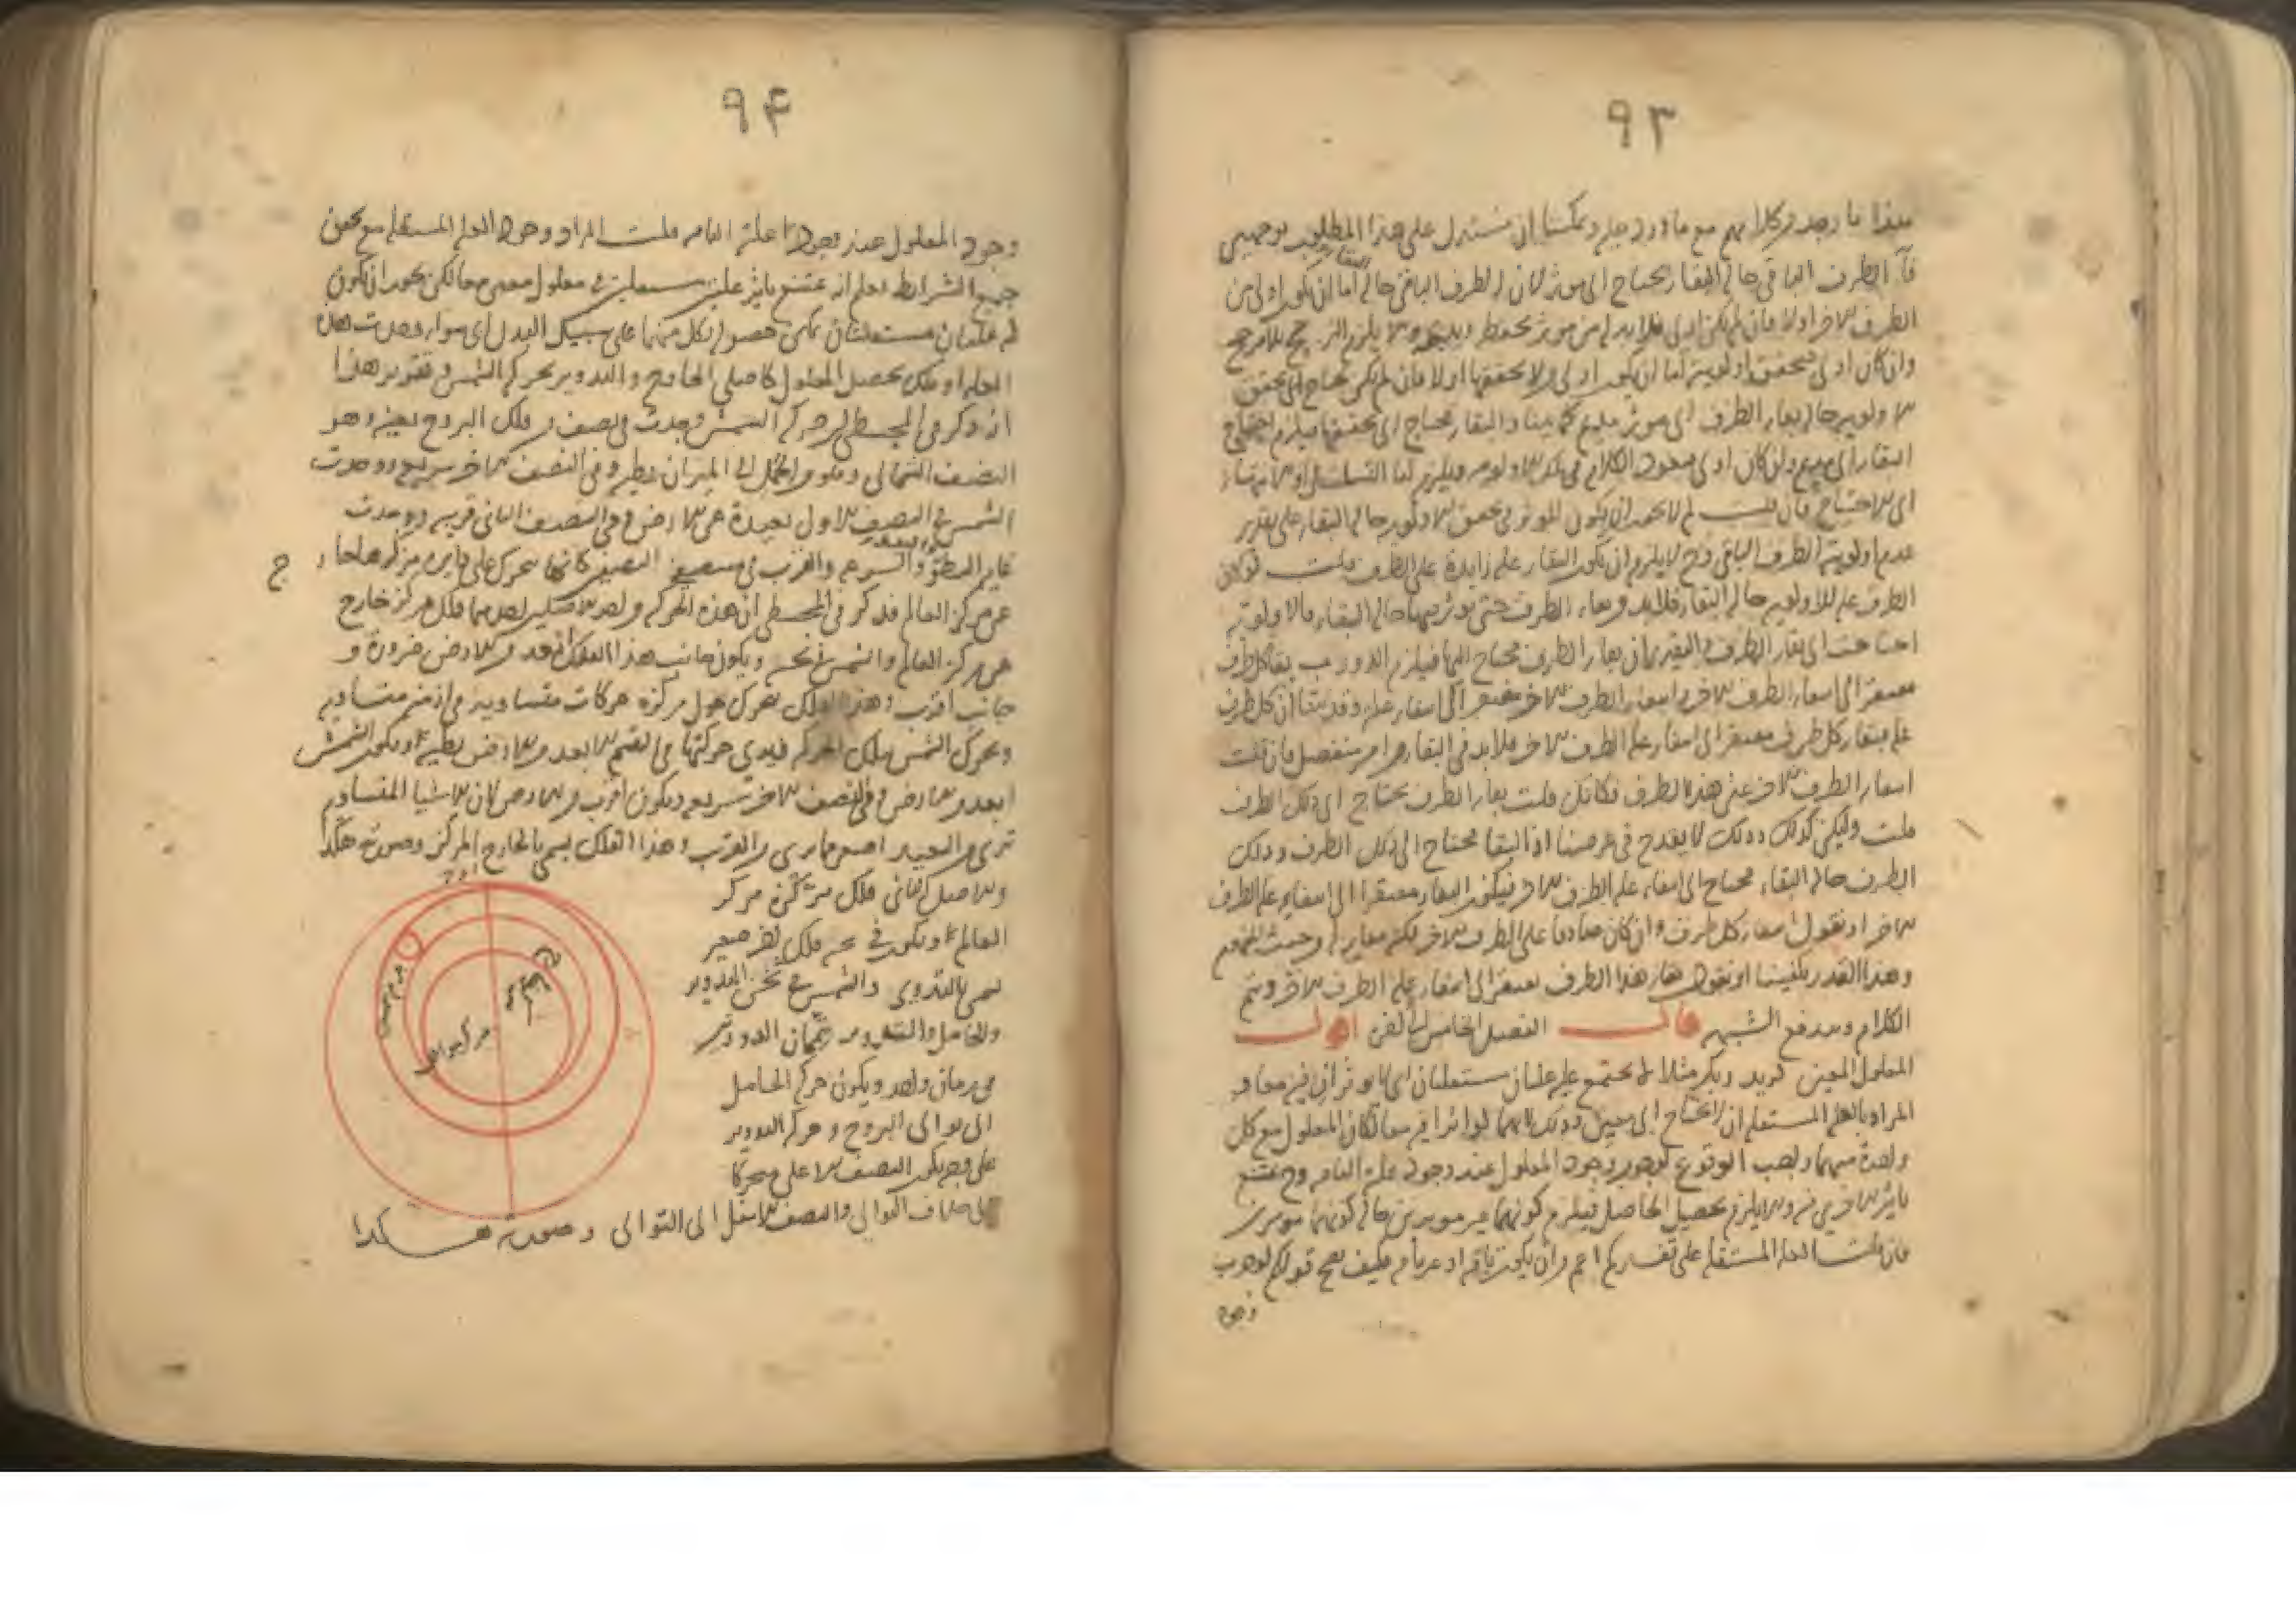 ٩٣
هذا ما وجد من كلامهم مع ما ورد عليه ويمكننا ان نستدل على هذا المطلوب بوجهين
آ الطرف الباقي حالة البقاء يحتاج الى موثر لان الطرف الباقي حالة البقاء اما ان يكون اولى من
الطرف الاخر اولا فان لم يكن اولى فلا بد له من موثر يحفظه ويديمه والا يلزم الترجيح بلا مرجح
وان كان اولى فتحقق اولويته اما ان يكون اولى من لا تحققها اولا فان لم يكن يحتاج الى تحقق
الاولوية حالة بقاء الطرف الى موثر مديم كما بينا والبقاء يحتاج الى تحققها فيلزم احتياج
البقاء الى مديم وان كان اولى فيعود الكلام في تلك الاولوية ويلزم اما التسلسل او الانتهاء
الى الاحتياج فان قلت لم لا يجوز ان يكون الموثر في تحقق الاولوية حالة البقاء على تقدير
عدم اولوية الطرف الباقي وح لا يلزم ان يكون للبقاء علة زايدة على الطرف قلت لو كان
الطرف علة للاولوية حالة البقاء فلا بد من بقاء الطرف حتى يوثر فيها حالة البقاء والاولوية
احتاجت الى بقاء الطرف والتقدير ان بقاء الطرف محتاج اليها فيلزم الدور ب بقاء كل طرف
مفتقر الى انتفاء الطرف الاخر وانتفاء الطرف الاخر مفتقر الى انتفاء علته وقد بينا ان كل طرف
علة فبقاء كل طرف مفتقر الى انتفاء علة الطرف الاخر فلا بد في البقاء من امر منفصل فان قلت
انتفاء الطرف الاخر عين هذا الطرف فكانك قلت بقاء الطرف يحتاج الى ذلك الطرف
قلت وليكن كذلك وذلك لا يقدح في غرضنا اذ البقاء محتاج الى ذلك الطرف وذلك
الطرف حالة البقاء محتاج الى انتفاء علة الطرف الاخر فيكون البقاء مفتقرا الى انتفاء علة الطرف
الاخر او نقول انتفاء كل طرف وان كان صادقا على الطرف الاخر لكنه مغاير له من حيث المفهوم
وهذا القدر يكفينا او نقول بقاء هذا الطرف يفتقر الى انتفاء علة الطرف الاخر ويتم
الكلام ويندفع الشبهة قال الفصل الخامس الى اخره اقول
المعلول المعين كزيد وبكر مثلا لا يجتمع عليه علتان مستقلتان اى لا يوثران فيه معا و
المراد بالعلة المستقلة ان لا تحتاج الى معين وذلك لانهما لو اثرا فيه معا لكان المعلول مع كل
واحدة منهما واجب الوقوع لوجوب وجود المعلول عند وجود علته التامة وح يمتنع
تاثير الاخرى فيه والا يلزم تحصيل الحاصل فيلزم كونهما غير موثرين حالة كونهما موثرين
فان قلت العلة المستقلة على تفسيركم اعم من ان يكون تامة او غيرتامة فكيف يصح قولكم لوجوب
وجود
٩۴
وجود المعلول عند وجود علته التامة قلت المراد وجود العلة المستقلة مع تحقق
جميع الشرايط اعلم انه يمتنع تاثير علتين مستقلتين في معلول معين معا لكن يجوز ان يكون
له علتان مستقلتان يمكن حصوله لكل منهما على سبيل البدل اى سواء وجدت هذه
العلة او تلك يحصل المعلول كاصلى الخارج والتدوير لحركة الشمس وتقرير هذا
انه ذكر في المجسطى ان حركة الشمس وجدت في نصف من فلك البروج بعينه وهو
النصف الشمالى وهو من الحمل الى الميزان بطيئة وفي النصف الاخر سريعة ووجدت
الشمس في النصف الاول بعيدة عن الارض وفي النصف الثانى قريبة ووجدت
غاية البطؤ والبعد والسرعة والقرب في منتصفى النصفين كانها تتحرك على دايرة مركزها خارج
عن مركز العالم فذكر في المجسطى ان هذه الحركة من احد الاصلين احدهما فلك مركزه خارج
عن مركز العالم والشمس في ثخنه ويكون جانب هذا الفلك ابعد من الارض ضرورة و
جانب اقرب وهذا الفلك يتحرك حول مركزه حركات متساوية في ازمنة متساوية
وتحرك الشمس بتلك الحركة فيرى حركتها في القسم الابعد من الارض بطيئة ويكون الشمس
ابعد من الارض وفي النصف الاخر سريعة ويكون اقرب من الارض لان الاشياء المتساوية
ترى من البعيد اصغر مما يرى من القريب وهذا الفلك يسمى بالخارج المركز وصورته هكذا
والاصل الثانى فلك مركزه مركز
العالم ويكون في ثخنه فلك اخر صغير
يسمى بالتدوير والشمس في ثخن التدوير
والحامل والتدوير يتمان الدورتين
في زمان واحد ويكون حركة الحامل
الى توالى البروج وحركة التدوير
على وجه يكون النصف الاعلى متحركا
الى خلاف التوالى والنصف الاسفل الى التوالى وصورته هكذا
ج
اوج